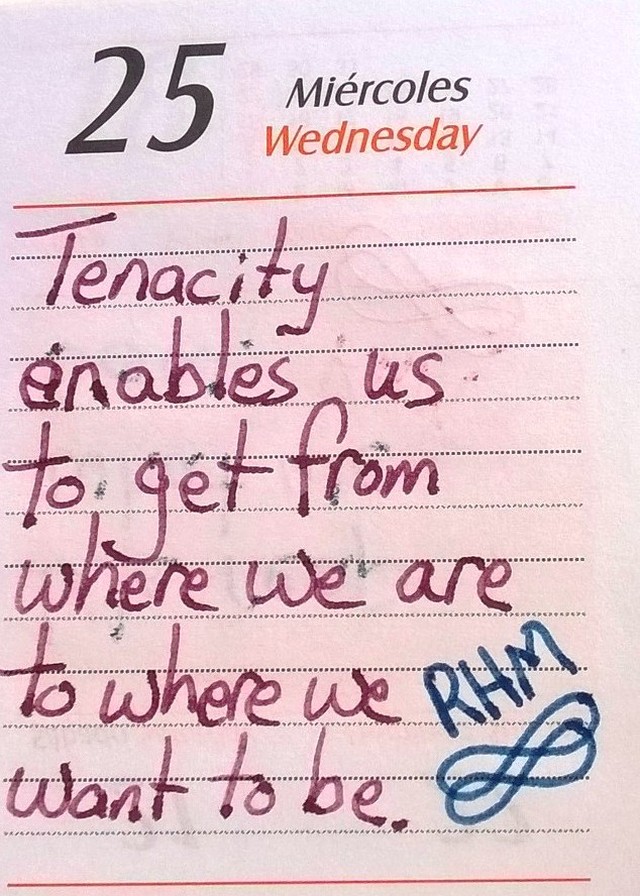 25 Miércoles
Wednesday
Tenacity
enables us
to get from
where we are
to where we
want to be.
RHM